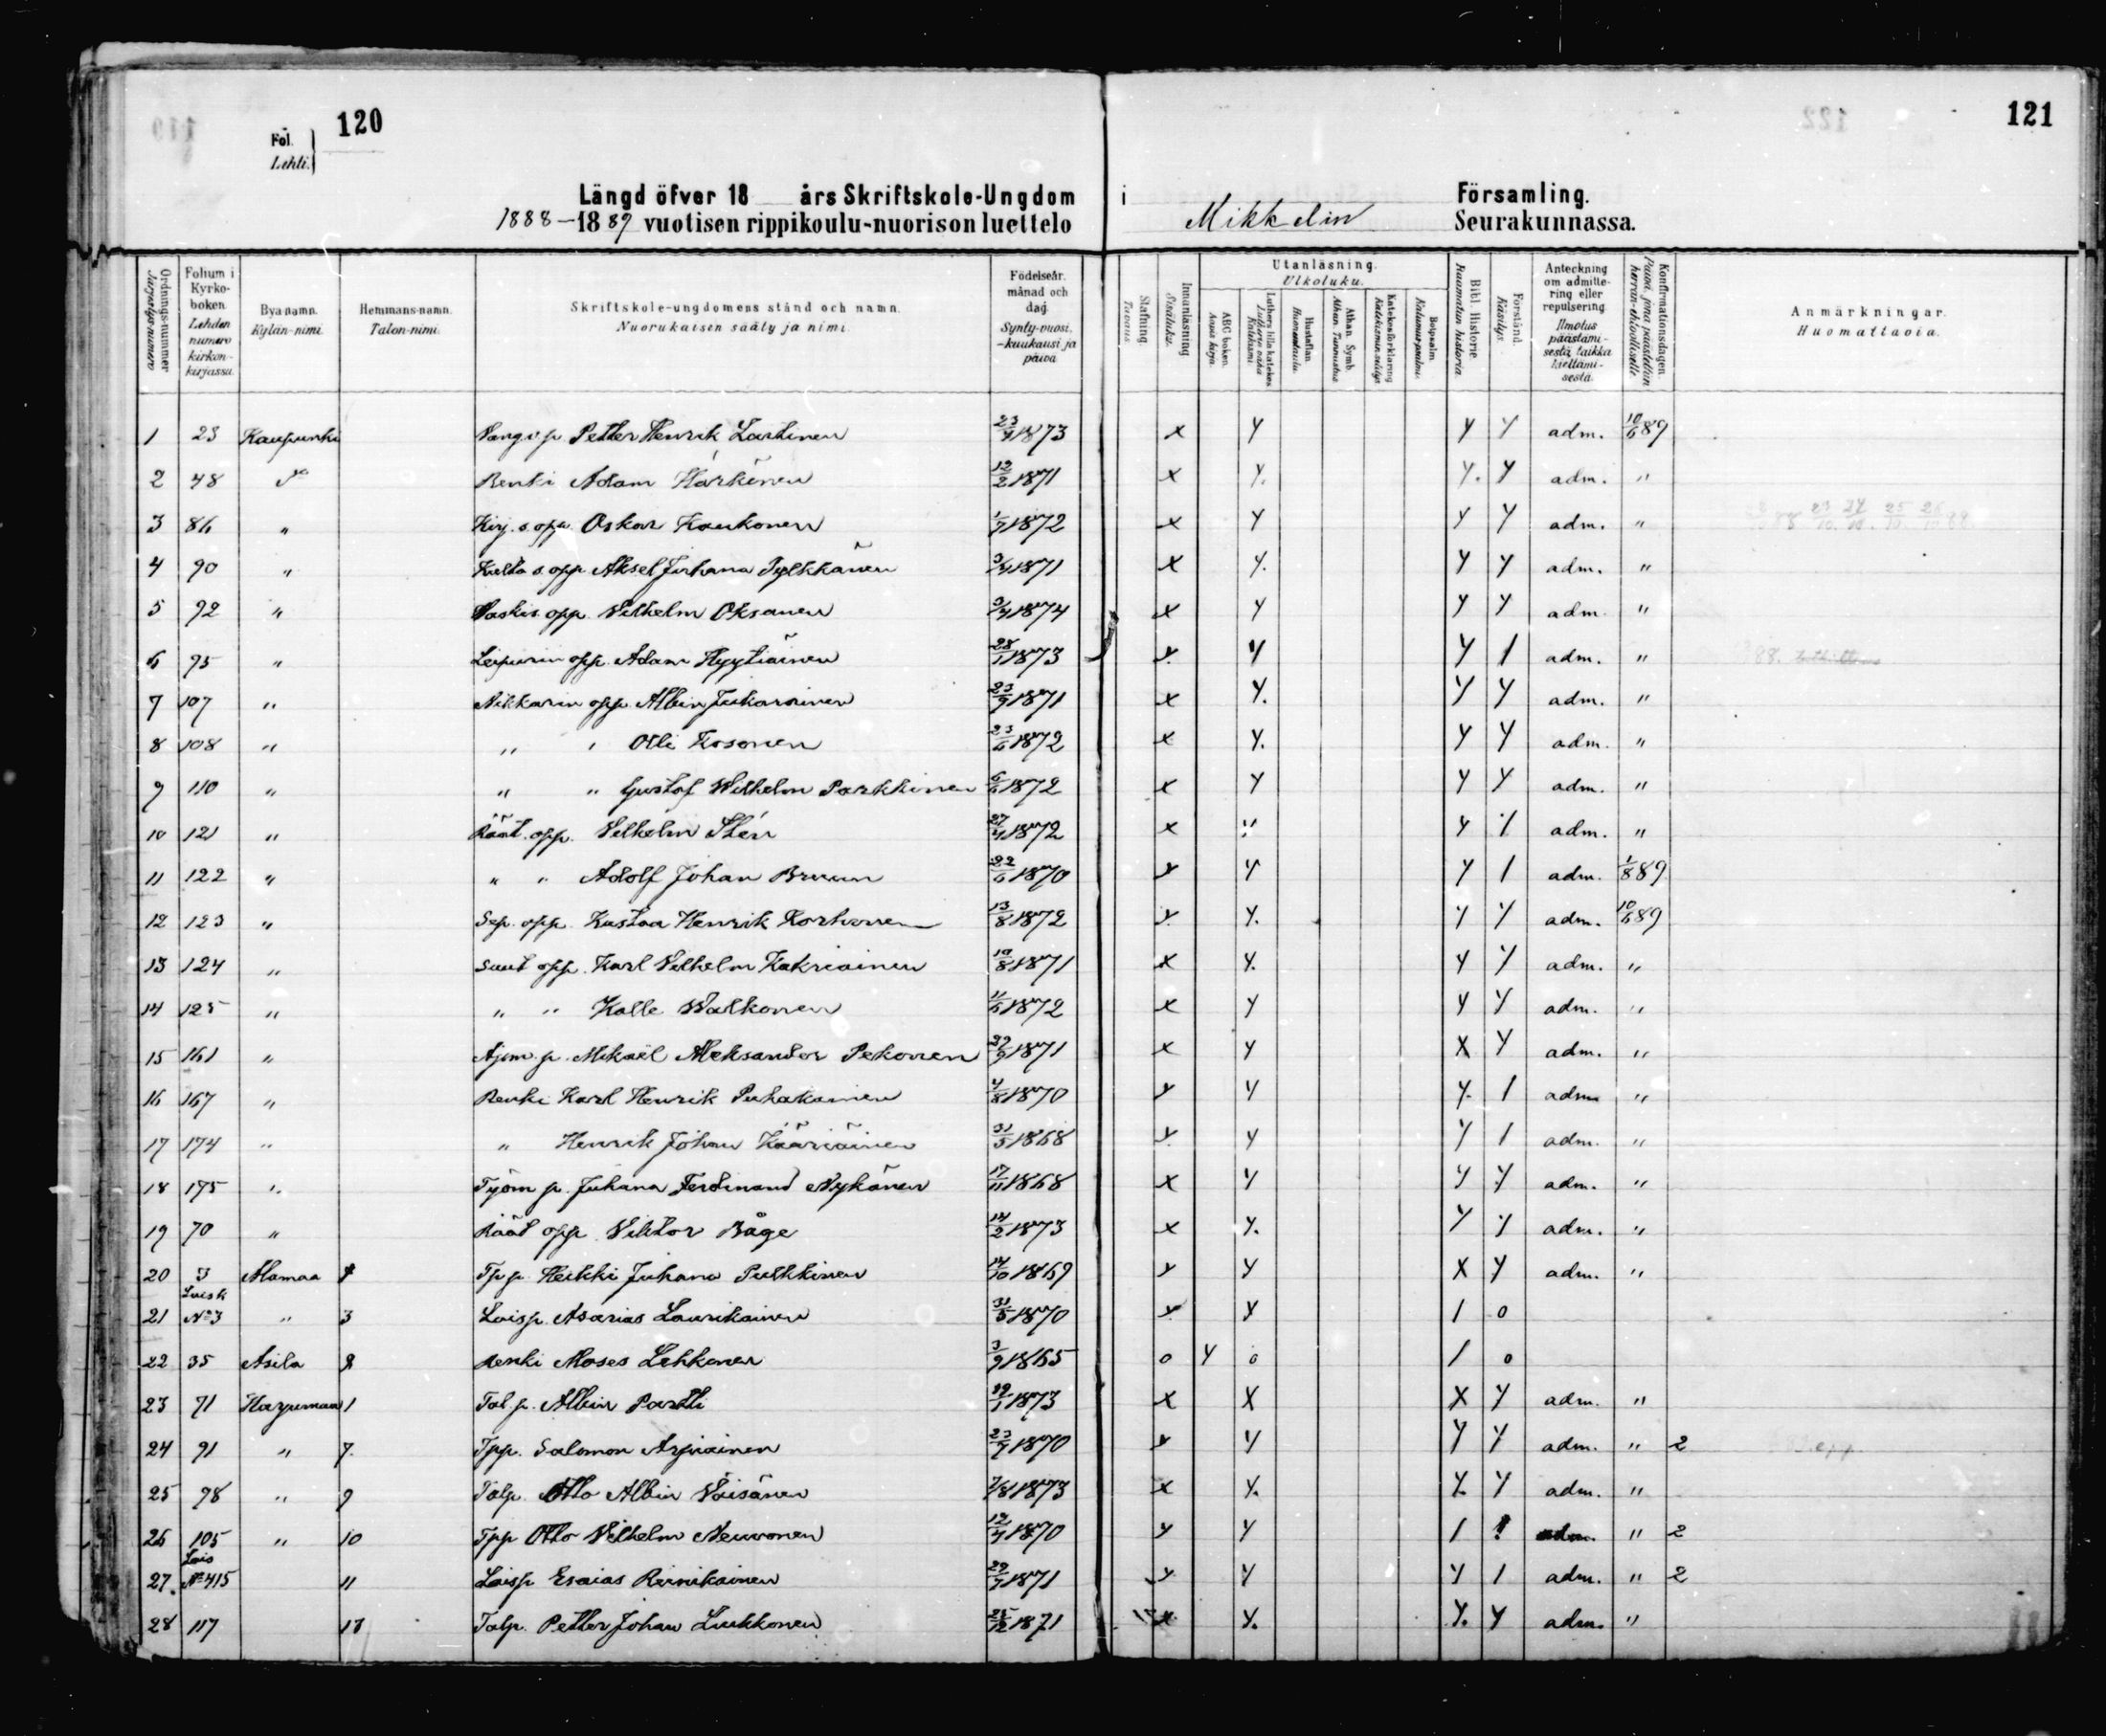 120
121
Fol.
Lehti.
Längd öfver 18 års Skriftskole-Ungdom i Församling.
1888-1889 vuotisen rippikoulu-nuorison luettelo Mikkelin Seurakunnassa.
Ordnings-nummer Järjestys-numero
Folium i Kyrko-boken. Lehden numero kirkon-kirjassa.
Byanamn. Kylän-nimi.
Hemmans-namn. Talon-nimi.
Skriftskole-ungdomens stånd och namn. Nuorukaisen sääty ja nimi.
Födelseår, månad och dag. Synty-vuosi, -kuukausi ja päivä
Stafning Tavaus
Innanläsning Sisäluku.
Utanläsning. Ulkoluku.
ABC boken. Aapis kirja.
Luthers lilla katekes Lutherin vähä Katekismi
Hustaflan. Huoneentaulu.
Athan. Symb. Athan. Tunnustus.
Katekesförklaring Katekismus-selitys
Botpsalm. Katumus-psalmi.
Bibl. Historie. Raamatun historia.
Förstånd. Käsitys.
Anteckning om admittering eller repulsering. Ilmotus päästämisestä taikka kieltämisestä.
Konfirmationsdagen. Päivä, jona päästettiin herran-ehtoolliselle
Anmärkningar. Huomattavia.
1 23 Kaupunki Petter Henrik Lastinen 1873 x Y Y Y adm. 10/6 89
2 48 Renki Adam Härkönen 12/2 1871 x Y. Y. Y adm. "
3 86 " Kirj. s. opp. Oskar Kaukonen 1872 x Y Y Y adm. "
4 90 " Kulta s. opp Aksel Juhana Pylkkänen 1871 x Y. Y Y adm. "
5 92 " Vaskis. opp. Vilhelm Oksanen 1874 x Y Y Y adm. "
6 95 " Leipurin opp. Adam Hyytiäinen 28/1 1873 Y Y Y 1 adm. "
7 107 " Nikkarin opp. Albin Jukarainen 23/9 1871 x Y. Y Y adm. "
8 108 " " " Otto Kosonen 23/6 1872 x Y. Y Y adm. "
9 110 " " " Gustaf Wilhelm Parkkinen 6/6 1872 x Y Y Y adm. "
10 121 " Räät. opp. Vilhelm Stén 1872 x Y Y Y adm. "
11 122 " " " Adolf Johan Bruun 22/6 1870 Y Y Y 1 adm. 1/8 89
12 123 " Sep. opp. Kustaa Henrik Korhonen 13/8 1872 Y. Y. Y Y adm. 10/6 89
13 124 " Suut opp. Karl Vilhelm Kakriainen 1871 x Y. Y Y adm. "
14 125 " " " Kalle Walkonen 11/6 1872 x Y Y Y adm. "
15 161 " Ajom. p. Mikael Aleksander Pekonen 1871 x Y X Y adm. "
16 167 " Renki Karl Henrik Puhakainen 4/8 1870 Y Y Y. 1 adm "
17 174 " " Henrik Johan Kääriäinen 31/5 1868 Y. Y Y 1 adm. "
18 175 " Työm p. Juhana Ferdinand Nykänen 17/11 1868 x Y Y Y adm. "
19 70 " Räät opp. Viktor Båge 14/2 1873 x Y. Y Y adm. "
20 3 Alamaa Tp p. Heikki Juhana Pulkkinen 14/10 1869 Y Y X Y adm. "
21 No 3 " 3 Loisp. Asarias Laurikainen 31/5 1870 Y Y 1 o
22 35 Asila 2 Renki Moses Lehkonen 3/9 1865 o Y o 1 o
23 71 Harjumaa 1 Tal. p. Albin Partti 1873 x X X Y adm. "
24 91 " 7 Tpp. Salomon Arpiainen 1870 Y Y Y Y adm. " 2
25 98 " 9 Talp. Otto Albin Väisänen 1873 x Y. Y. Y adm. "
26 105 " 10 Tpp Otto Vilhelm Neuvonen 1870 Y Y 1 adm. " 2
27 Lois No 415 11 Loisp Esaias Reinikainen 1871 Y Y Y 1 adm. " 2
28 117 18 Talp. Petter Johan Liukkonen 25/12 1871 x Y. Y. Y adm. "